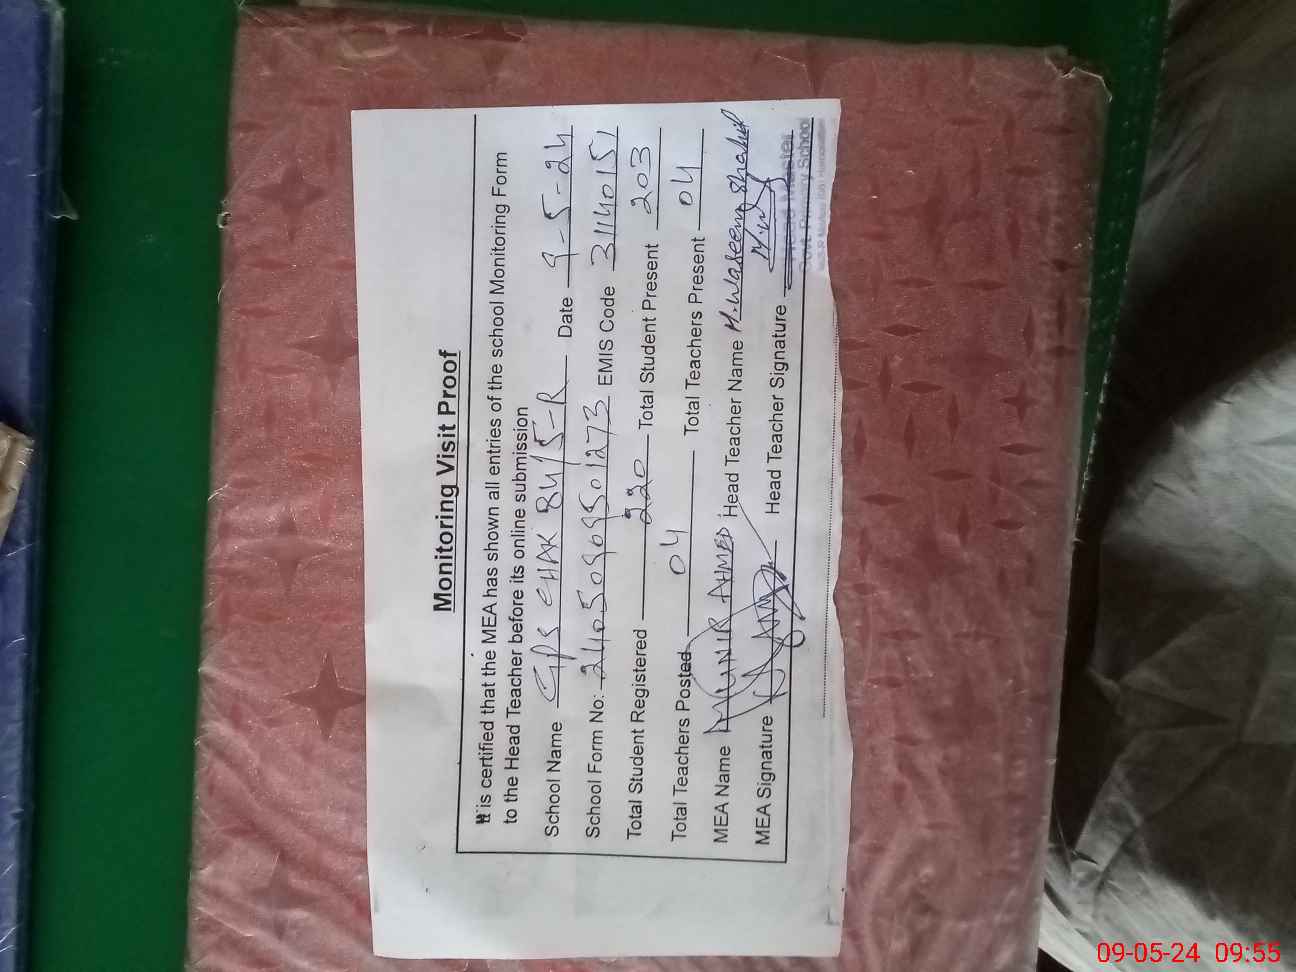 Monitoring Visit Proof
It is certified that the MEA has shown all entries of the school Monitoring Form
to the Head Teacher before its online submission
School Name GPS CHAK 84/5-R Date 9-5-24
School Form No: 24050909501273 EMIS Code 31140151
Total Student Registered 220 Total Student Present 203
Total Teachers Posted 04 Total Teachers Present 04
MEA Name MUNIR AHMED Head Teacher Name M. Waseem Shahid
MEA Signature Head Teacher Signature
Head Master
Govt. Primary School
09-05-24 09:55